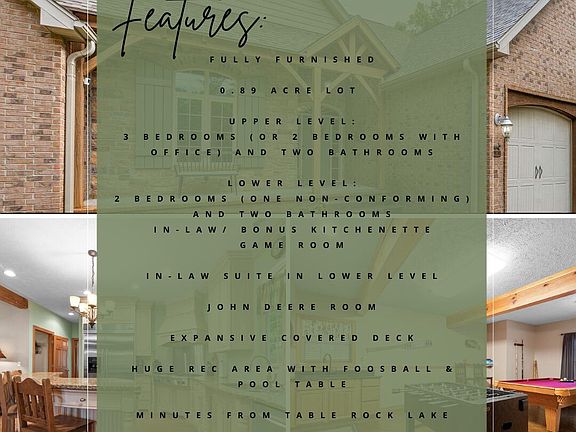 Features:
FULLY FURNISHED
0.89 ACRE LOT
UPPER LEVEL:
3 BEDROOMS (OR 2 BEDROOMS WITH
OFFICE) AND TWO BATHROOMS
LOWER LEVEL:
2 BEDROOMS (ONE NON-CONFORMING)
AND TWO BATHROOMS
IN-LAW/ BONUS KITCHENETTE
GAME ROOM
IN-LAW SUITE IN LOWER LEVEL
JOHN DEERE ROOM
EXPANSIVE COVERED DECK
HUGE REC AREA WITH FOOSBALL &
POOL TABLE
MINUTES FROM TABLE ROCK LAKE